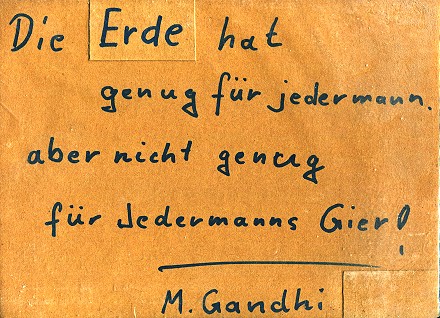 Die Erde hat
genug für jedermann.
aber nicht genug
für Jedermanns Gier!
M. Gandhi